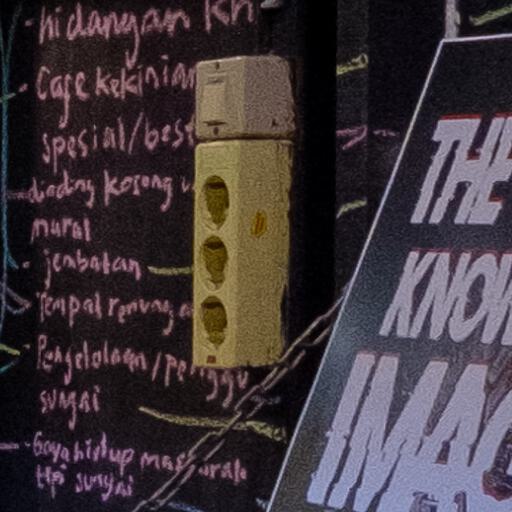 - hidangan kh
- Cafe kekinian
spesial/best
dinding kosong
mural
- jembatan
- Tempat renung
- Pengelolaan/penggu
sungai
- Gaya hidup masyarakat
tepi sungai
THE
KNOW
IMAG